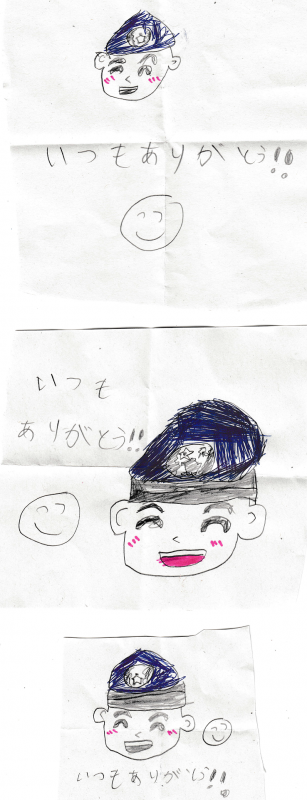 いつもありがとう!!
いつも
ありがとう!!
いつもありがとう!!